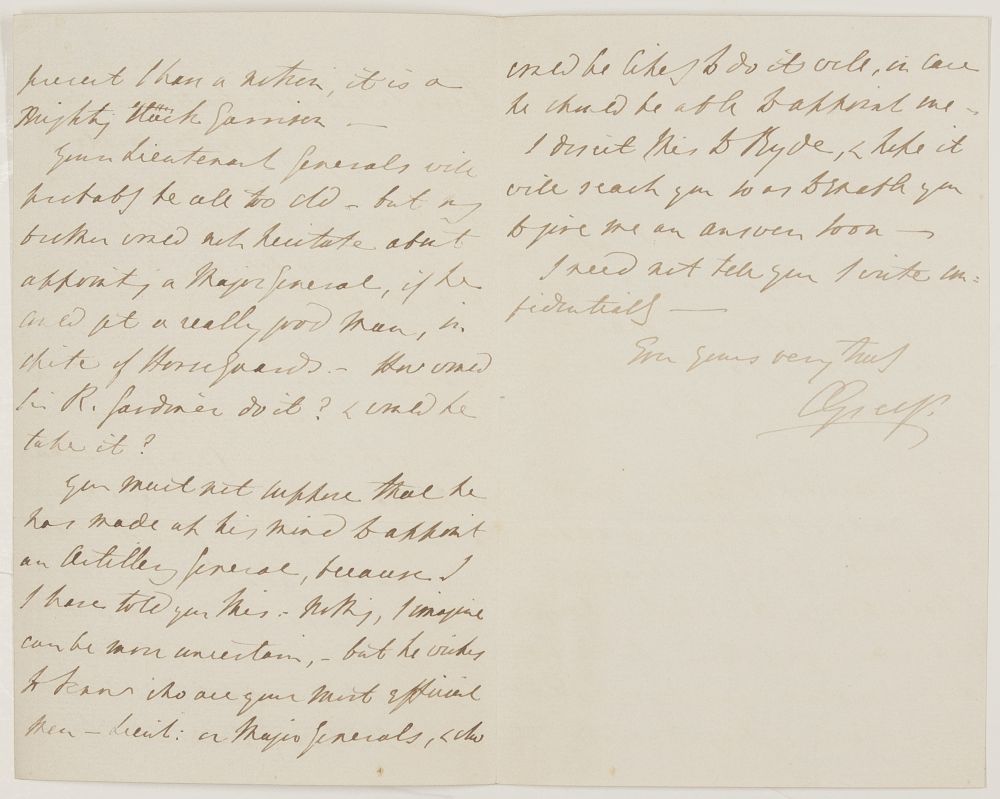 present I have a notion, it is a
mighty slack Garrison —
Your Lieutenant Generals will
probably be all too old – but my
brother would not hesitate about
appointg a Major General, if he
could get a really good man, in
spite of Horse Guards. – How would
Sir R. Gardiner do it? & would he
take it?
You must not suppose that he
has made up his mind to appoint
an Artillery General, because I
I have told you this – Nothg, I imagine
can be more uncertain, – but he wishes
to know who are your most efficient
men – Lieut: or Major Generals, & who
would be likely to do it well, in case
he should be able to appoint one –
I direct this to Ryde, & hope it
will reach you so as to enable you
to give me an answer soon —
I need not tell you I write con=
fidentially —
Ever yours very truly
CGrey.